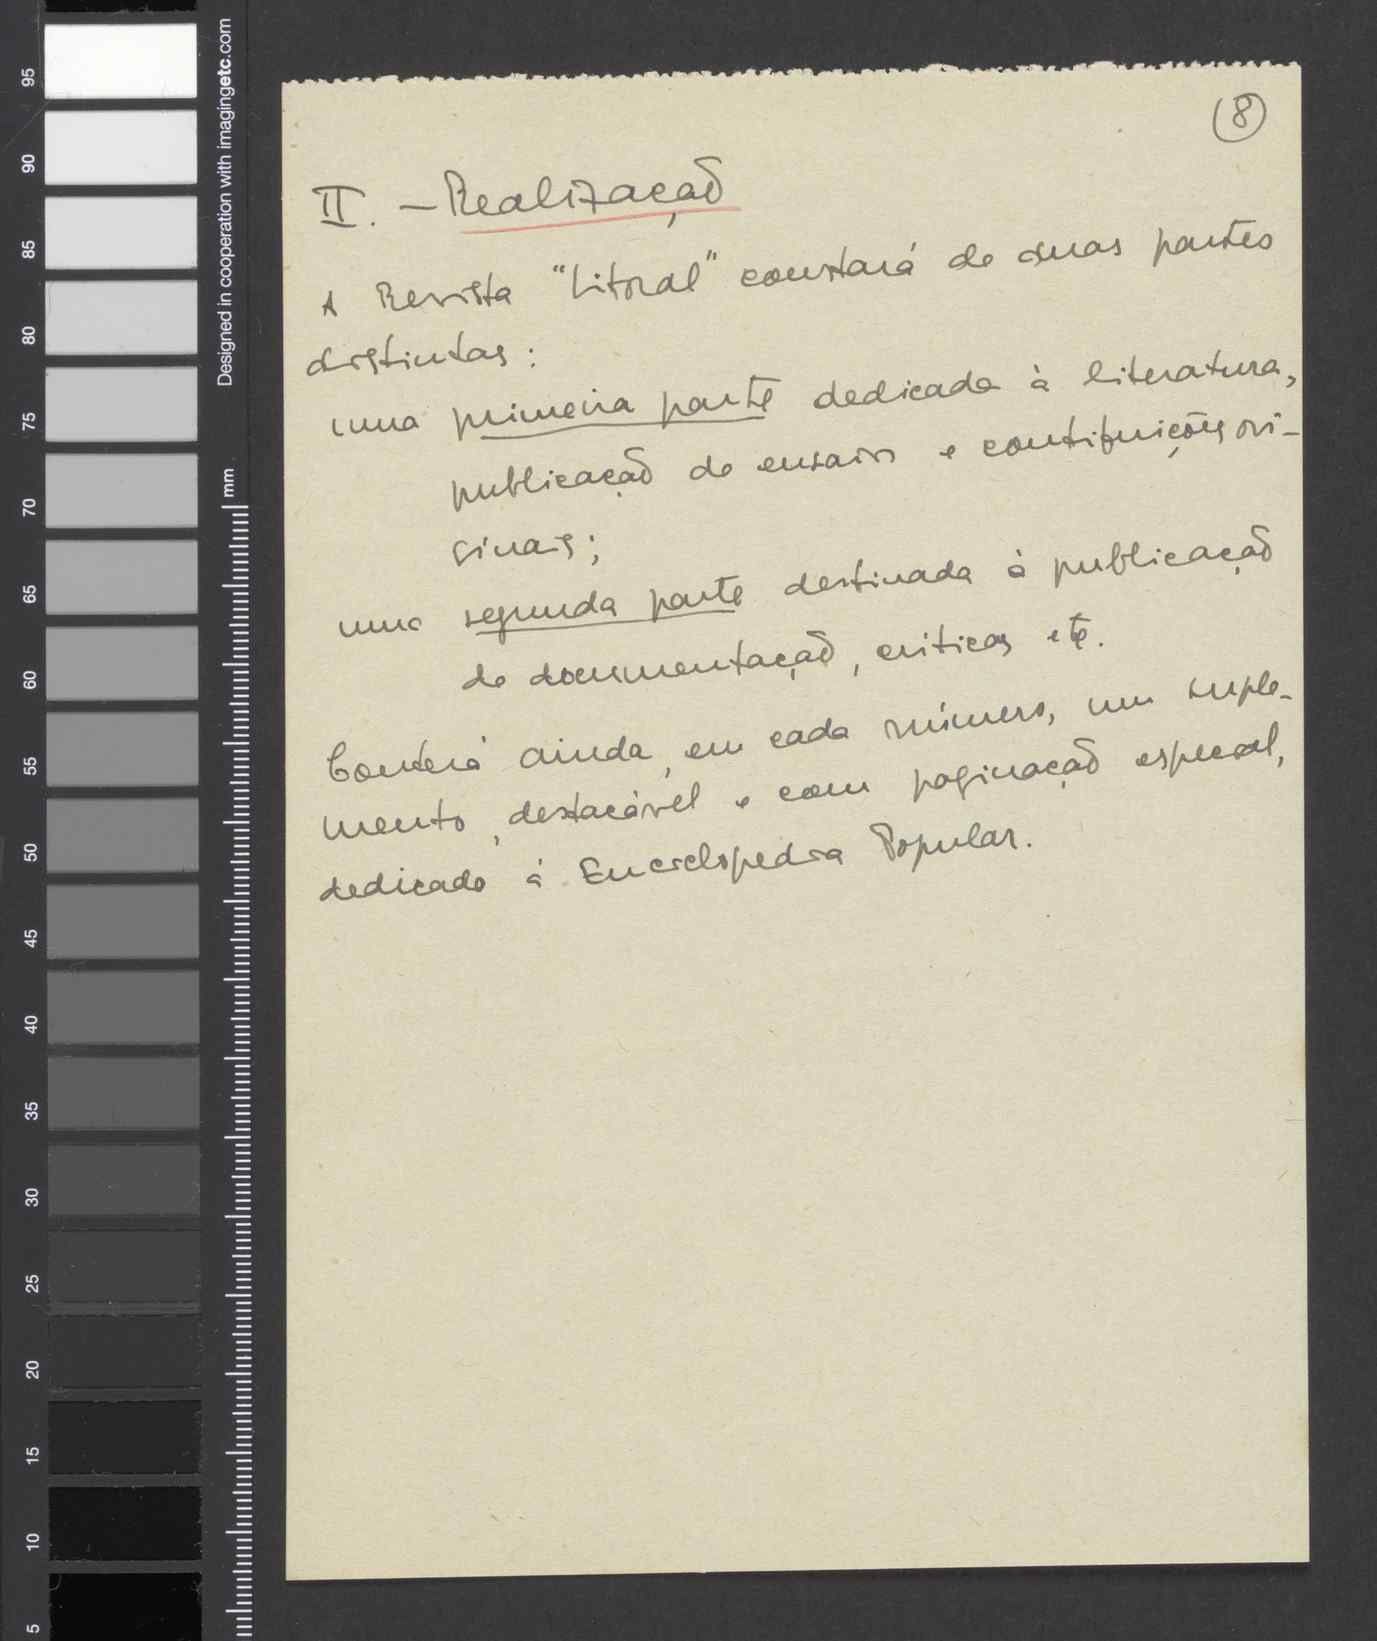 8
II. - Realização
A Revista "Litoral" constará de duas partes
distintas:
uma primeira parte dedicada à literatura,
publicação de ensaios e contribuições ori-
ginais;
uma segunda parte destinada à publicação
de documentação, criticas etc.
Conterá ainda, em cada número, um suple-
mento, destacável e com paginação especial,
dedicado à Enciclopedia Popular.
Designed in cooperation with imagingetc.com
mm
95
90
85
80
75
70
65
60
55
50
45
40
35
30
25
20
15
10
5